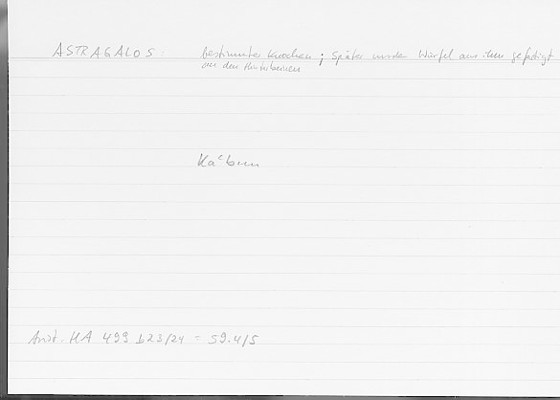 ASTRAGALOS: bestimmter Knochen; später wurden Würfel aus ihm gefertigt
an den Hinterbeinen
Kaʿbun
Arist. HA 499 b23/24 = 59.4/5